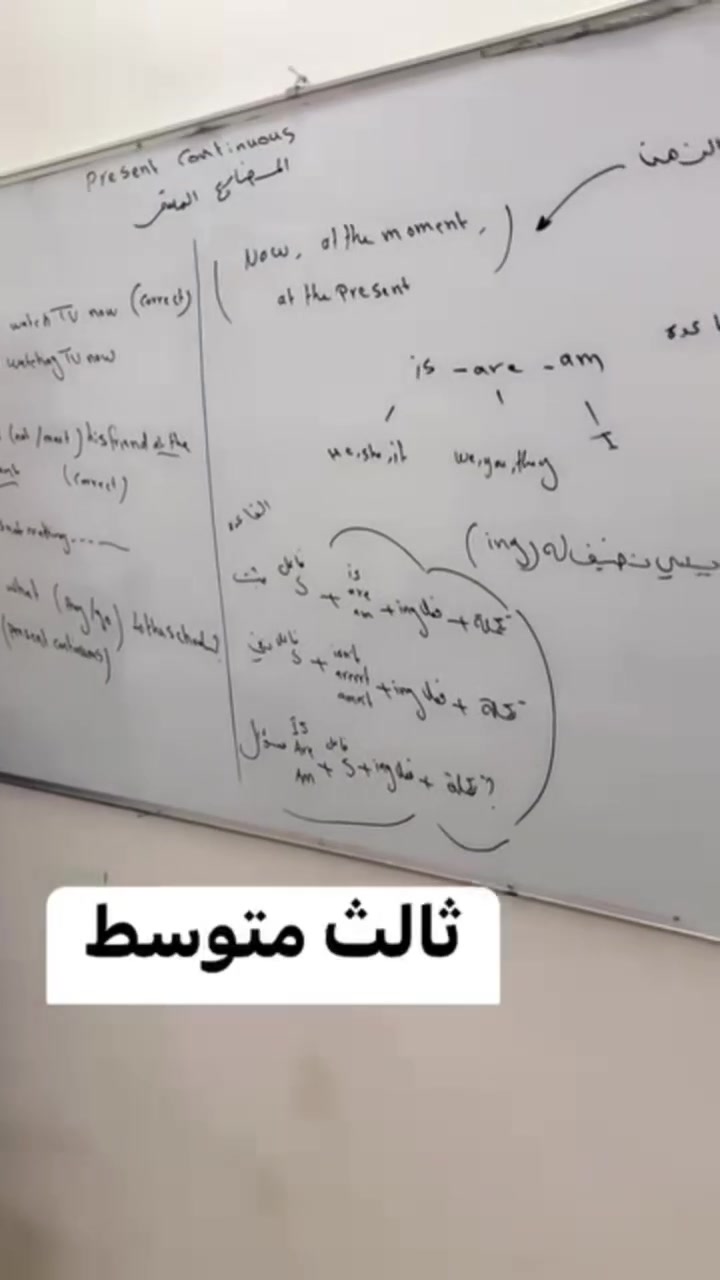 Present Continuous
المضارع المستمر
الزمن
(Now, at the moment,
at the Present)
is - are - am
he, she, it we, you, they I
(ing)
القاعدة
مثبت
فاعل
S + is
are
am + ing فعل + تكملة
S + isn't
aren't
amn't + ing فعل + تكملة
سؤال
Is
Are
Am + فاعل S + ing فعل + تكملة?
watch TV now (correct)
watching TV now
(not/meet) his friend at the
(correct)
what
to the school?
(present continuous)
ثالث متوسط